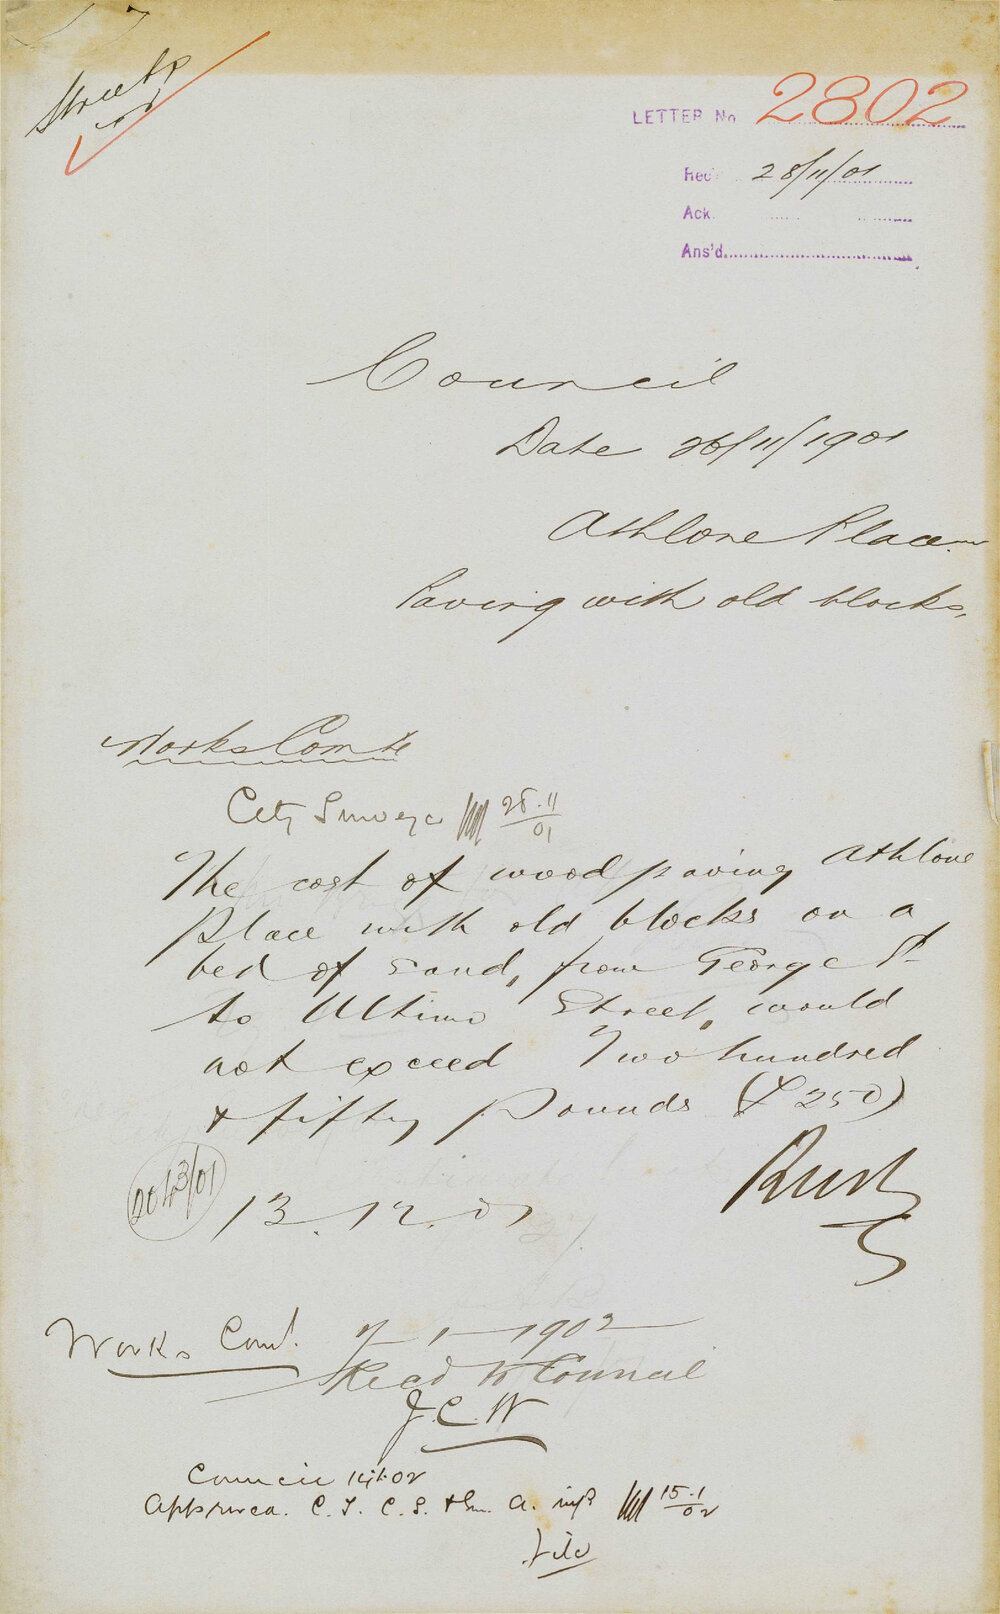 Streets
LETTER No 2802
Rec'd 28/11/01
Ack.
Ans'd
Council
Date 26/11/1901
Athlone Place
Paving with old blocks,
Works Comte
City Surveyor 28.11/01
The cost of wood paving Athlone
Place with old blocks on a
bed of sand, from George St
to Ultimo Street, would
not exceed Two hundred
& fifty Pounds (£250)
2043/01
13.12.01
Works Com.
1902
Read to Council
J.C.W
Council 14.1.02
Approved. C.T. C.S. A. 15.1/02
file